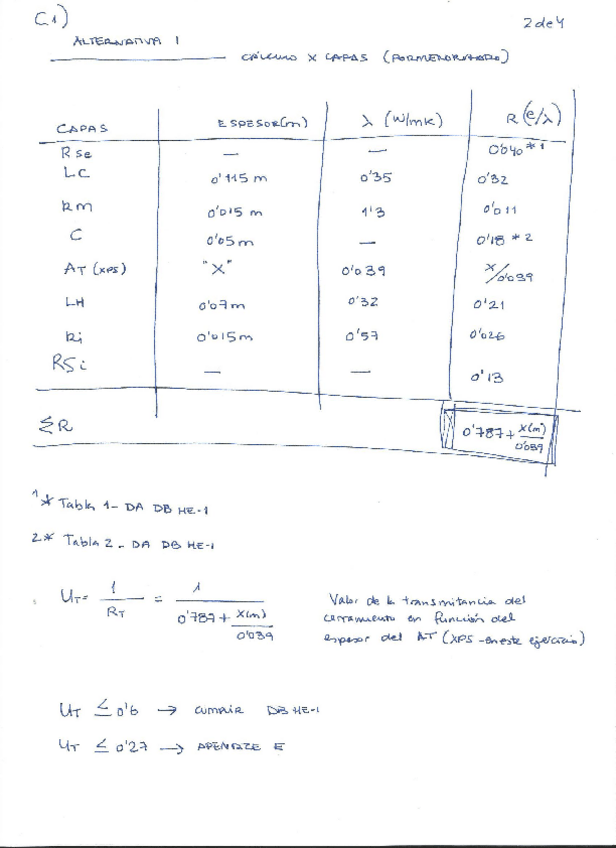 C1)
2 de 4
ALTERNATIVA 1
CÁLCULO X CAPAS (PORMENORIZADO)
CAPAS ESPESOR(m) λ (W/mK) R (e/λ)
Rse — — 0'040 *1
LC 0'115 m 0'35 0'32
Rm 0'015 m 1'3 0'011
C 0'05 m — 0'18 *2
AT (XPS) "X" 0'039 X/0'039
LH 0'07 m 0'32 0'21
Ri 0'015 m 0'57 0'026
RSi — — 0'13
ΣR 0'787 + X(m)/0'039
1* Tabla 1 - DA DB HE-1
2* Tabla 2 - DA DB HE-1
UT = 1/RT = 1/(0'787 + X(m)/0'039)
Valor de la transmitancia del
cerramiento en función del
espesor del AT (XPS - en este ejercicio)
UT ≤ 0'6 → CUMPLIR DB HE-1
UT ≤ 0'27 → APENDIZE E